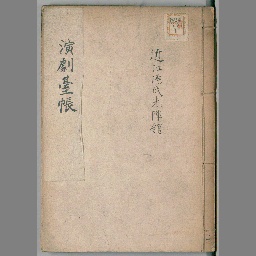 演劇臺帳
近江源氏先陣館